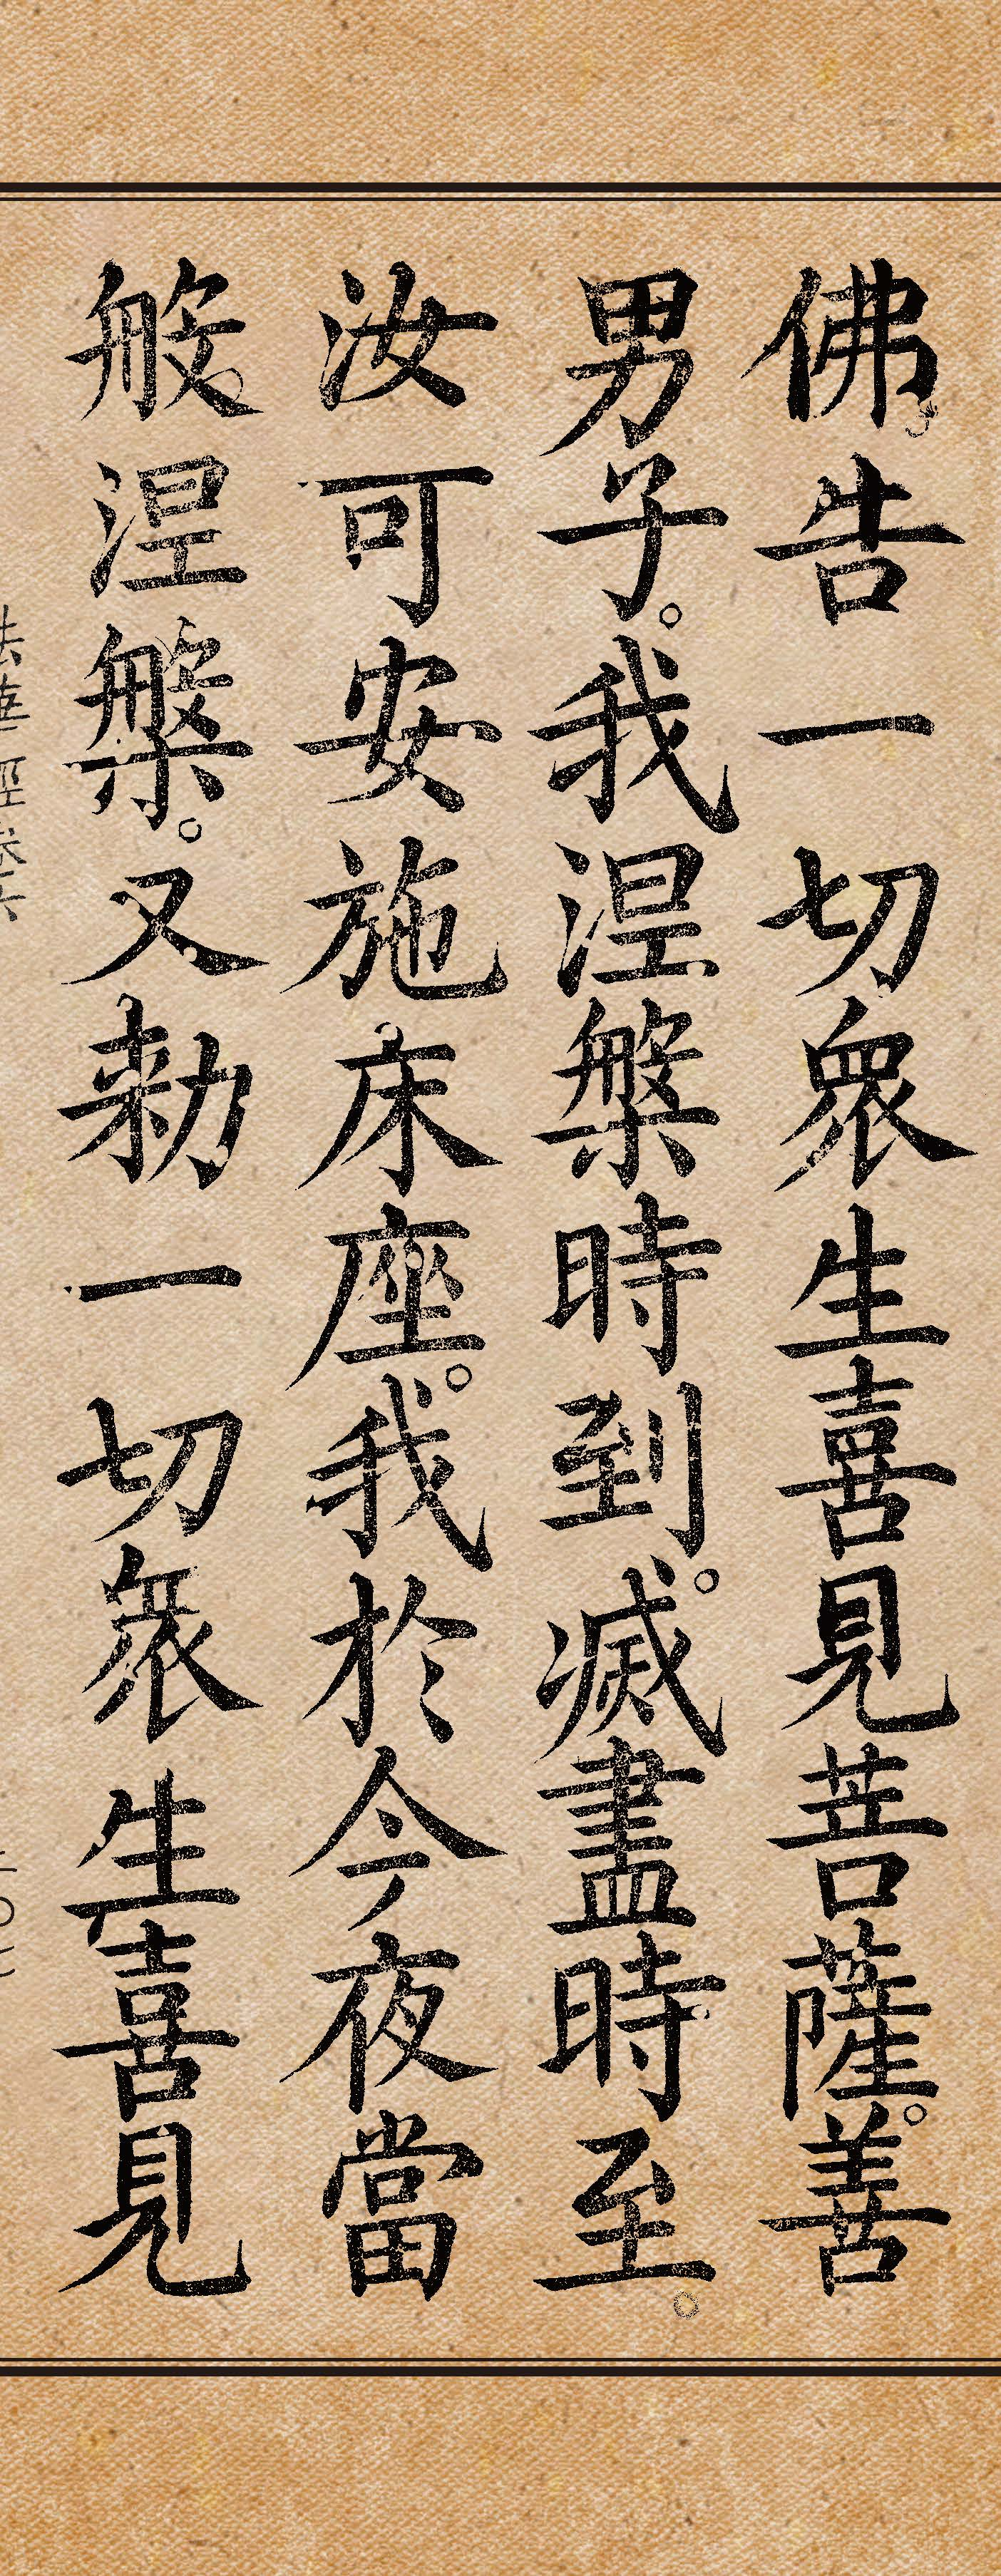 佛告一切眾生喜見菩薩。善
男子。我涅槃時到。滅盡時至。
汝可安施床座。我於今夜當
般涅槃。又勅一切眾生喜見
法華經卷六